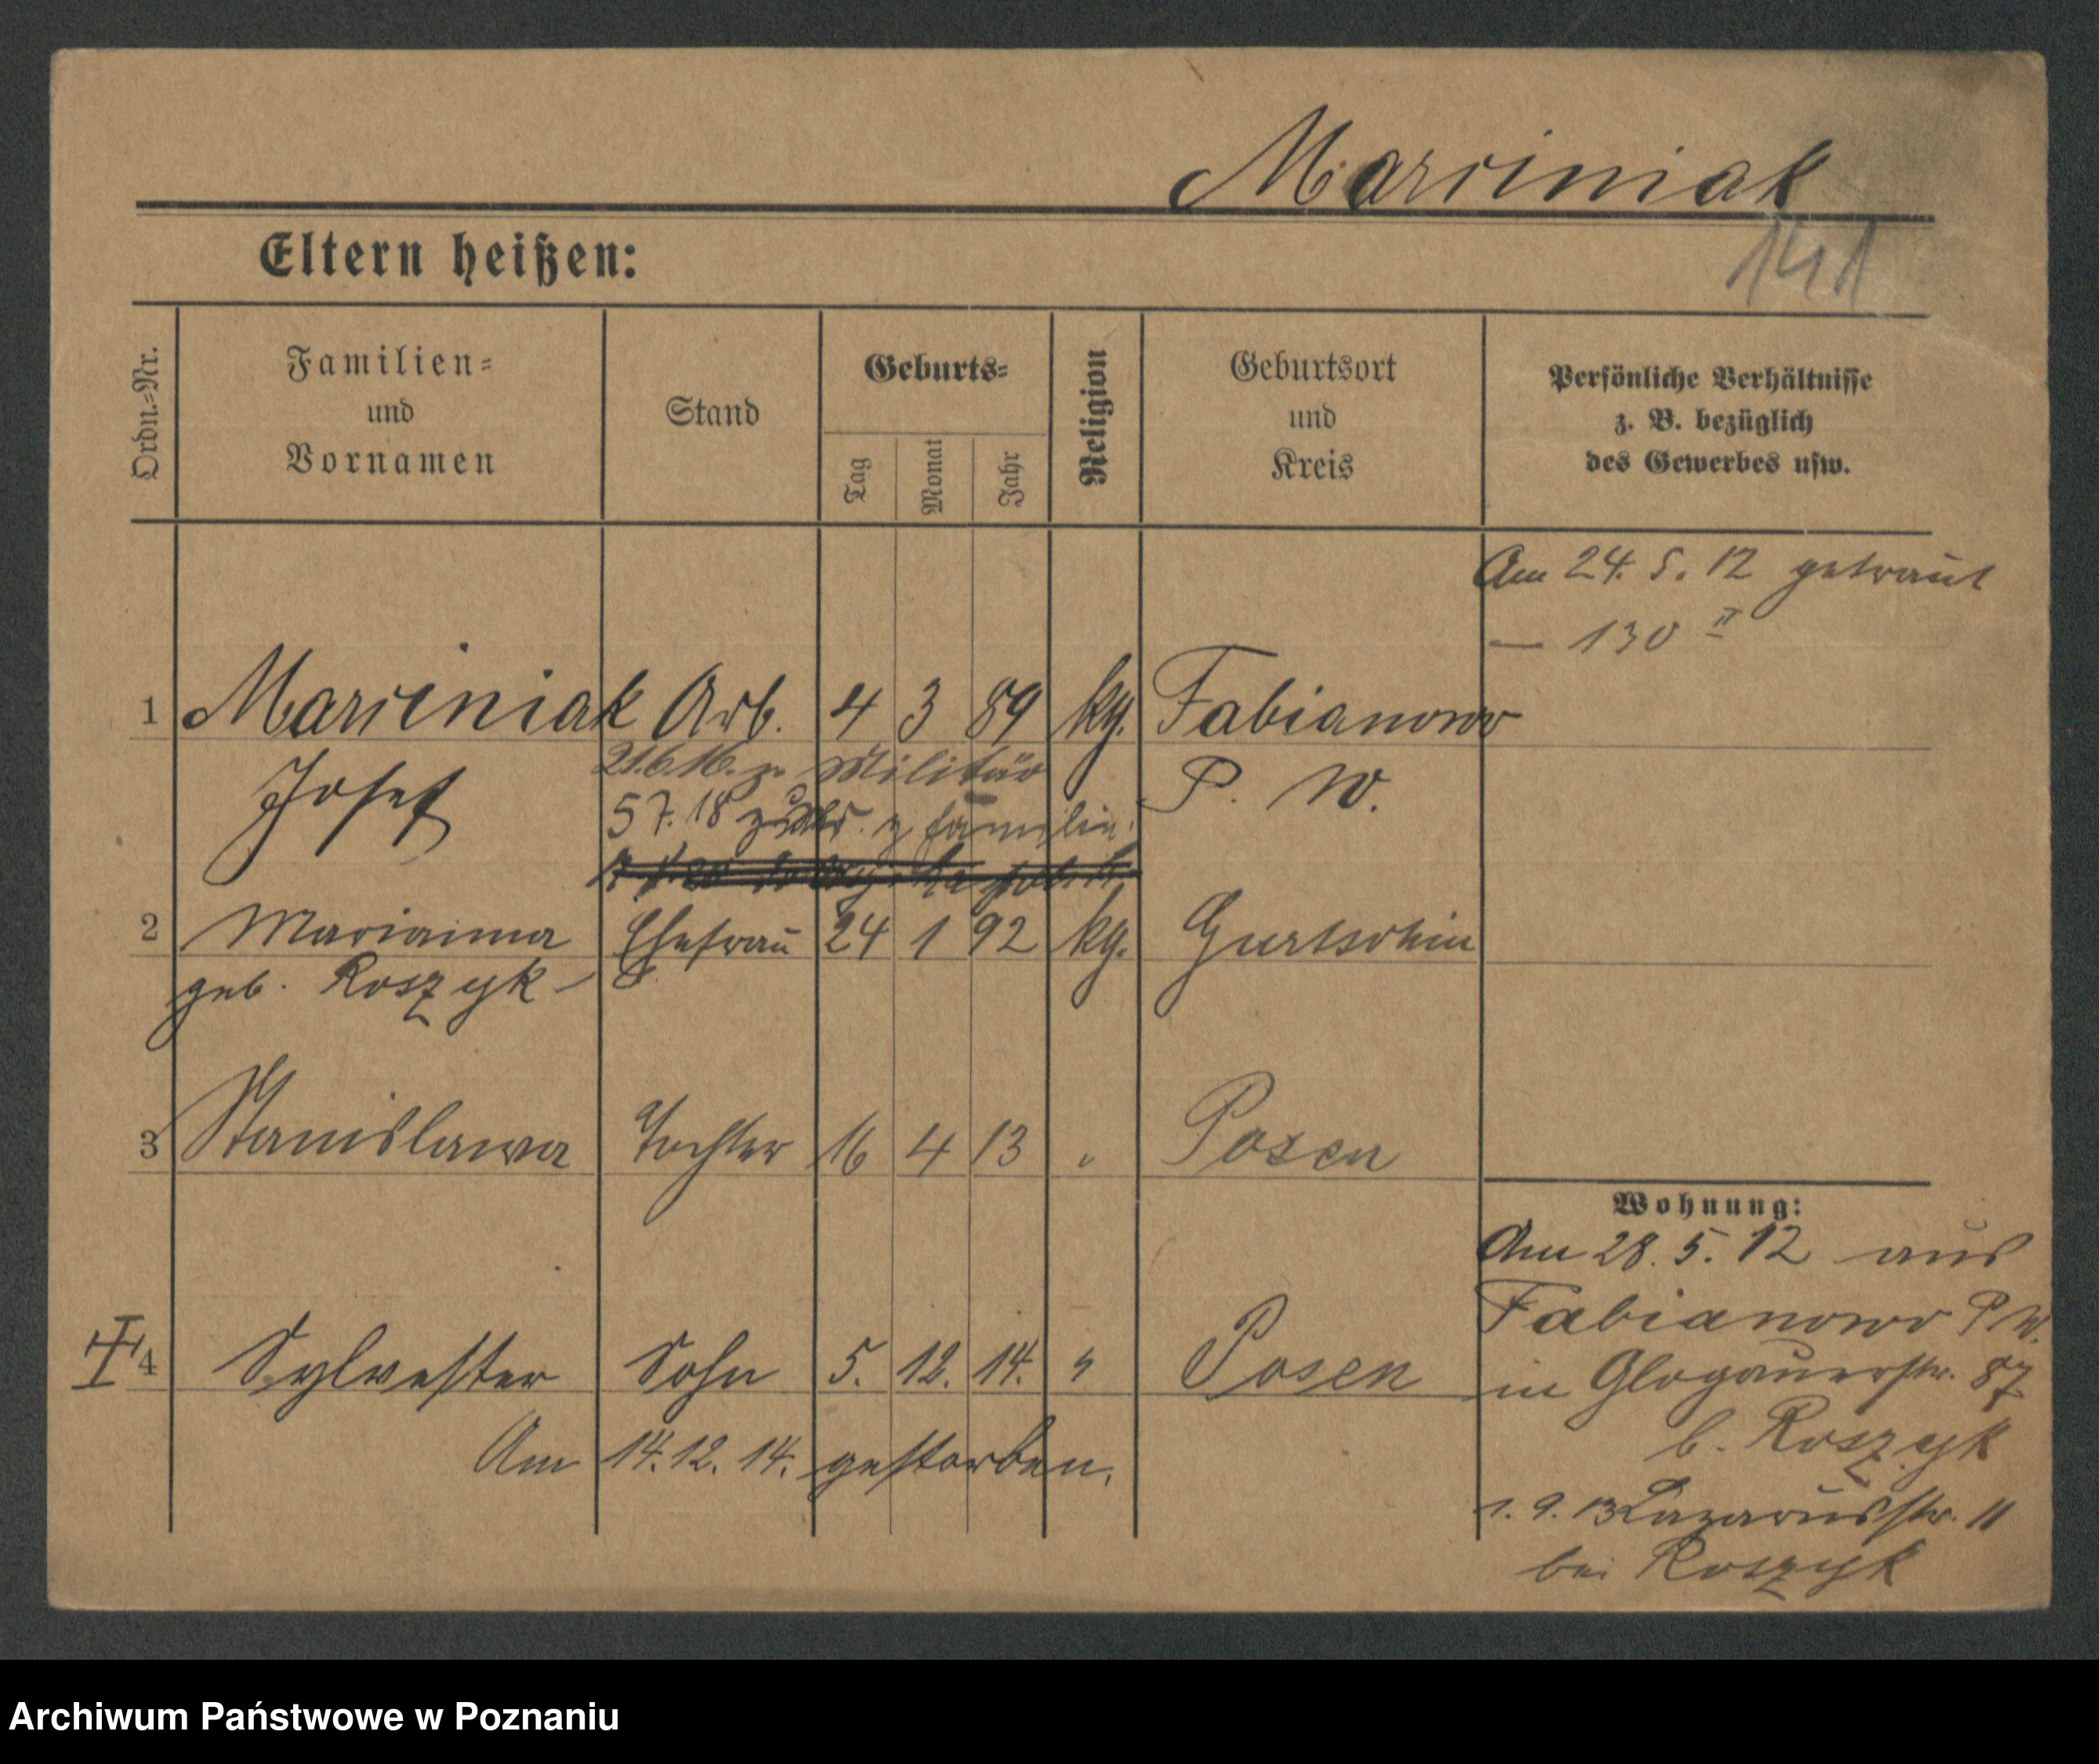 Marciniak
141
Eltern heißen:
Ordn.-Nr.
Familien-
und
Vornamen
Stand
Geburts-
Tag
Monat
Jahr
Religion
Geburtsort
und
Kreis
Persönliche Verhältnisse
z. B. bezüglich
des Gewerbes usw.
Am 24. 5. 12 getraut
— 130 II
1 Marciniak Arb. 4 3 89 kg. Fabianowo
Josef 21.6.16. z. Militär P. W.
5 7. 18 zur. z Familie.
2 Marianna Ehefrau 24 1 92 kg. Gurtschin
geb. Roszyk
3 Stanislawa Tochter 16 4 13 " Posen
Wohnung:
Am 28. 5. 12 aus
Fabianowo P W.
4 Sylvester Sohn 5. 12. 14. " Posen
in Glogauerstr. 87
b. Roszyk
Am 14. 12. 14. gestorben.
1. 9. 13 Lazarusstr. 11
bei Roszyk
Archiwum Państwowe w Poznaniu